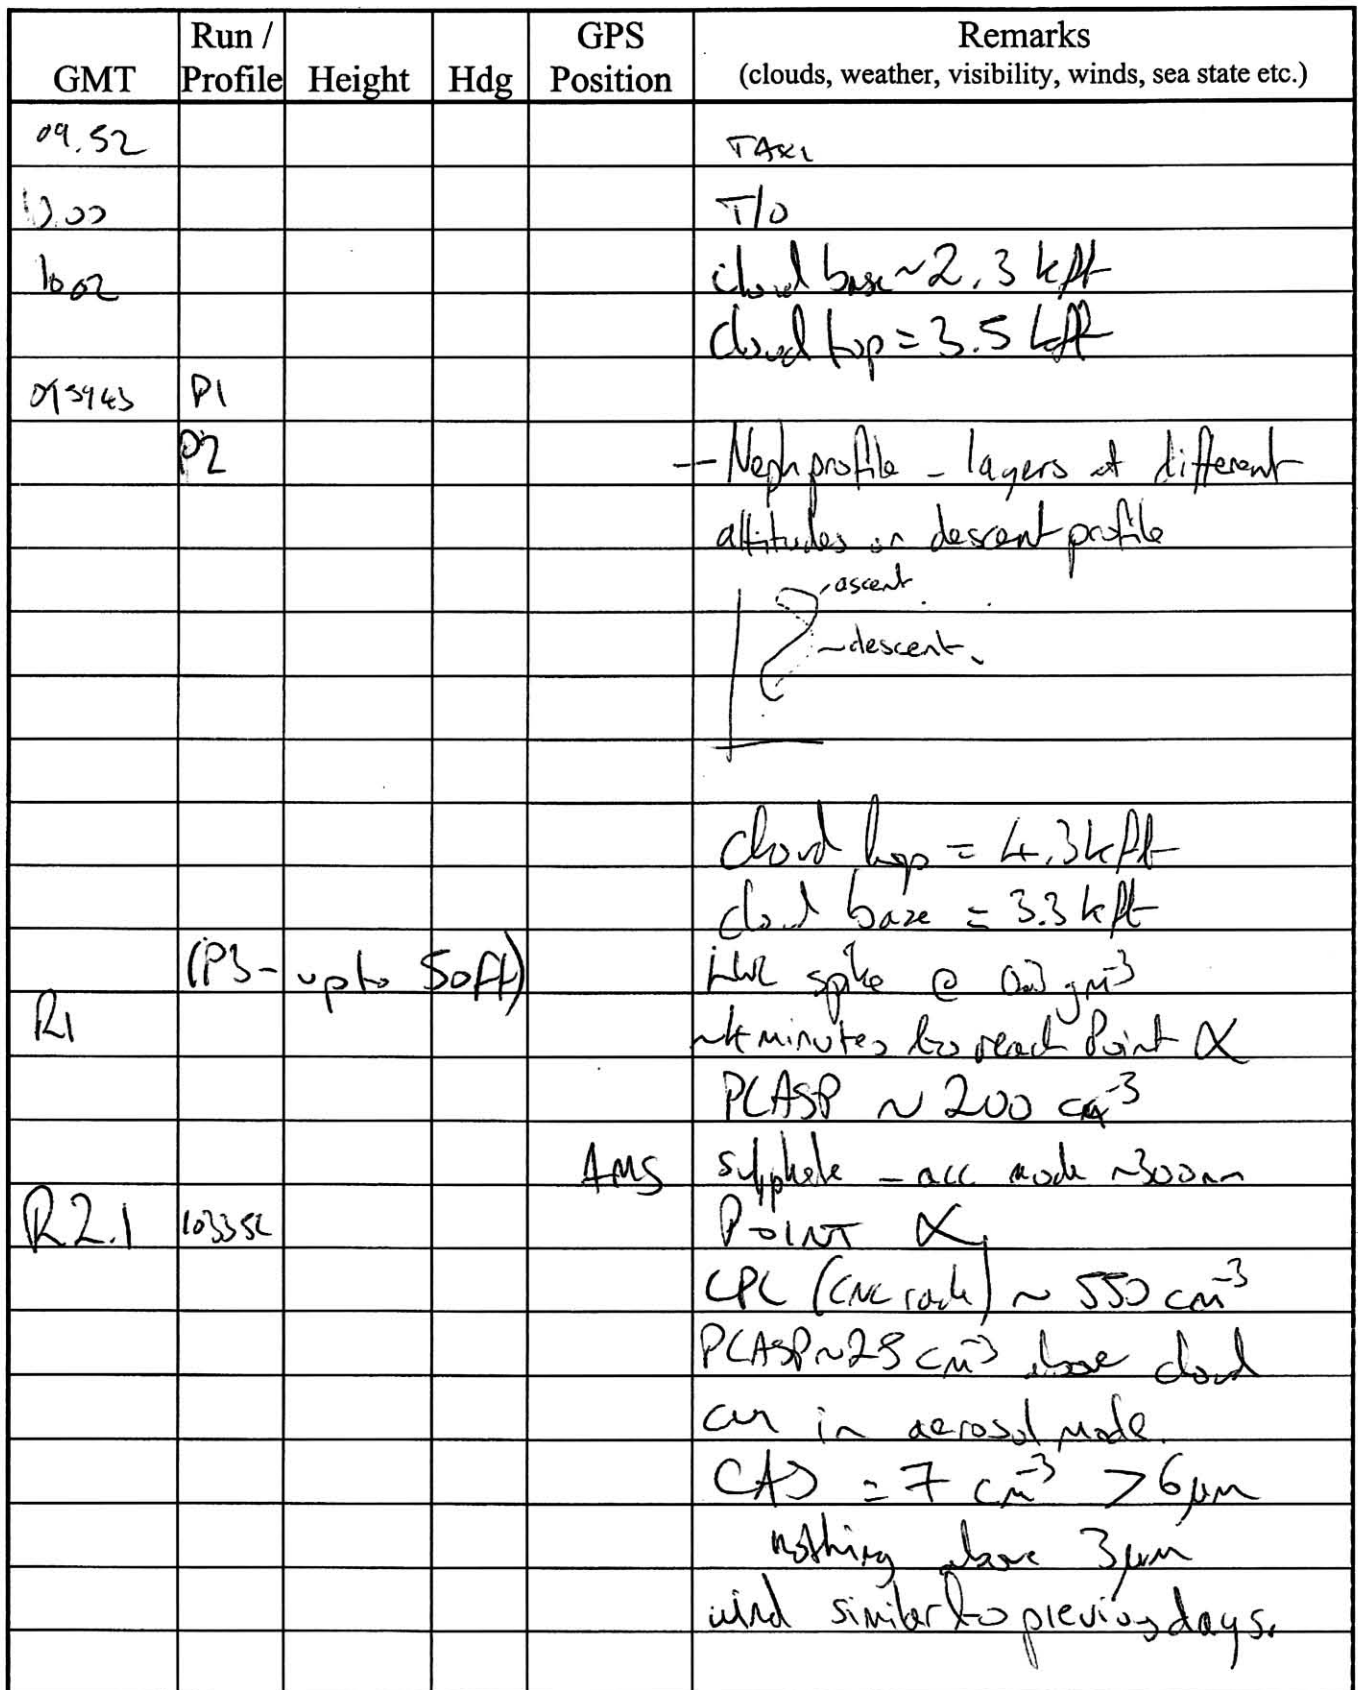 GMT Run / Profile Height Hdg GPS Position Remarks
(clouds, weather, visibility, winds, sea state etc.)
09.52 TAXI
10.00 T/O
1002 cloud base ~ 2.3 kft
cloud top = 3.5 kft
095943 P1
P2 - Neph profile - layers at different
altitudes on descent profile
ascent.
~descent.
cloud top = 4.3 kft
cloud base = 3.3 kft
(P3 - up to 50ft) spike @ gm-3
R1 minutes to reach Point α
PCASP ~ 200 cm-3
AMS sulphate - acc mode ~300nm
R2.1 POINT α
CPC (CNC rack) ~ 550 cm-3
PCASP ~ 28 cm-3 above cloud
in aerosol mode.
CAS = 7 cm-3 > 6µm
nothing above 3µm
wind similar to previous days.